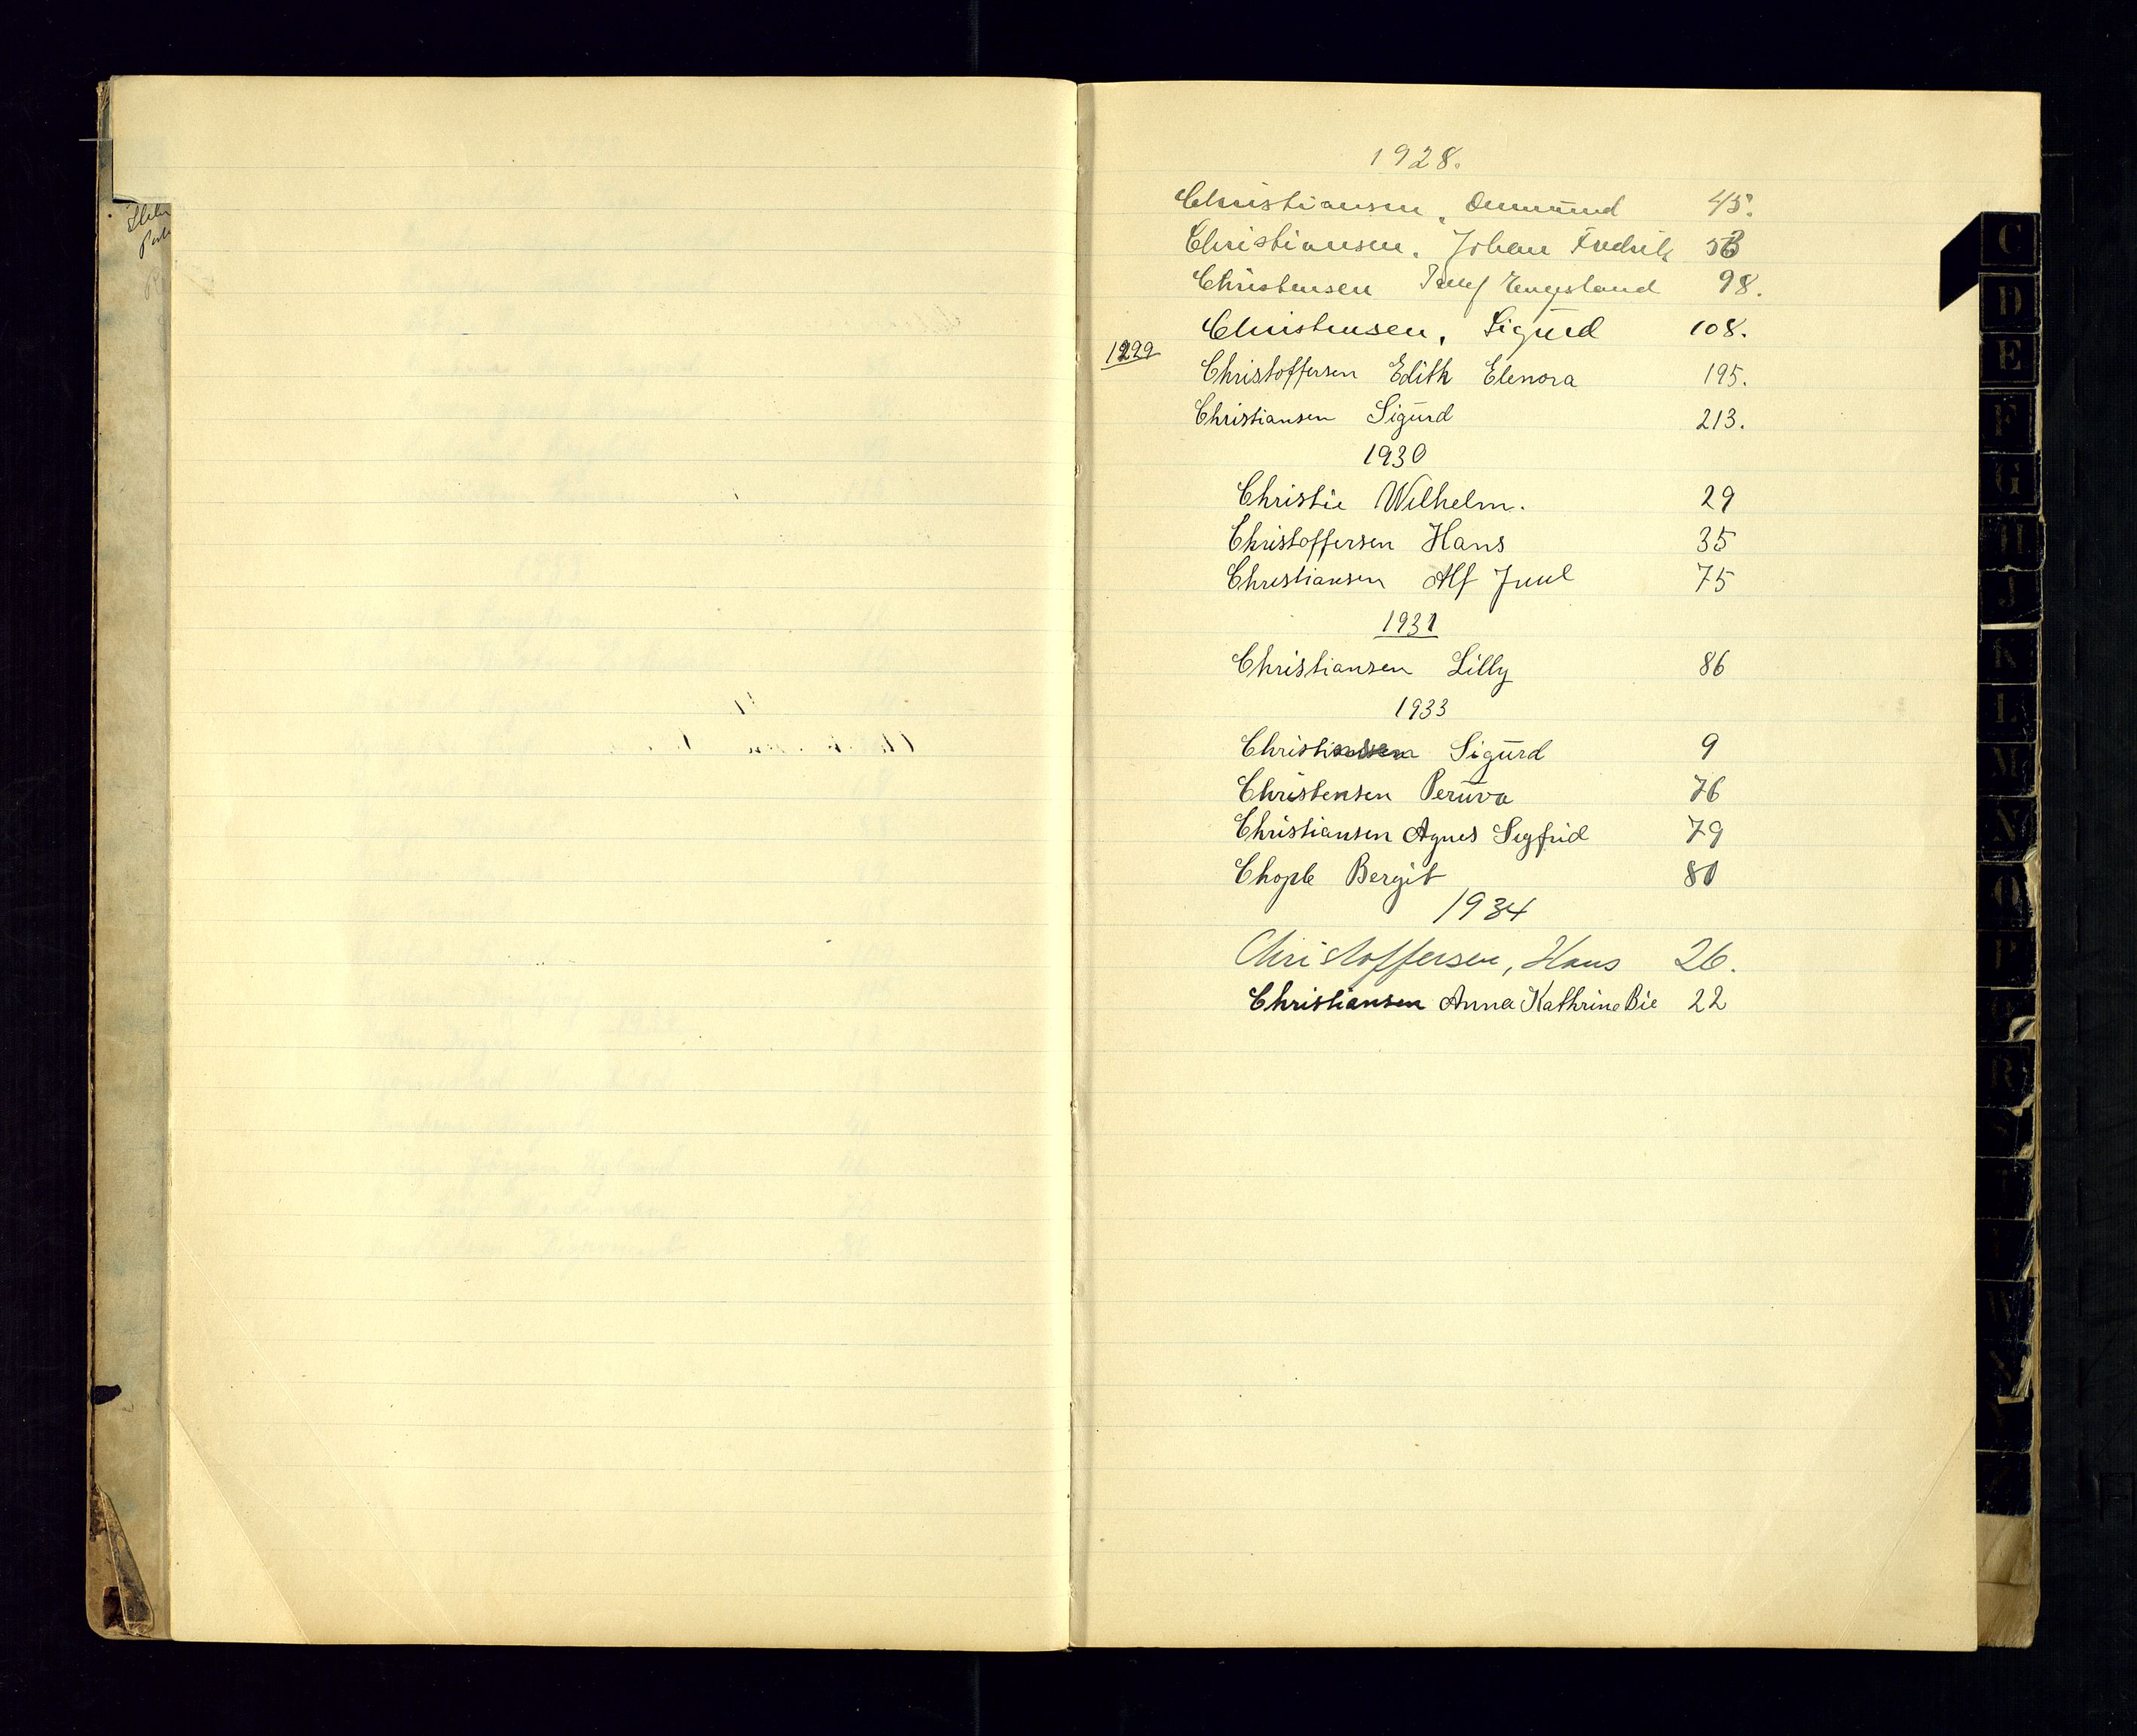 1928.
Christiansen, Ommund 45.
Christiansen, Johan Fredrik 53
Christensen Engesland 98.
Christensen, Sigurd 108.
1929
Christoffersen Edith Elenora 195.
Christiansen Sigurd 213.
1930
Christie Wilhelm. 29
Christoffersen Hans 35
Christiansen Alf Juul 75
1931
Christiansen Lilly 86
1933
Christiansen Sigurd 9
Christensen Peruva 76
Christiansen Agnes Sigfrid 79
Chople Bergit 80
1934
Christoffersen, Hans 26.
Christiansen Anna Kathrine Bie 22
C
D
E
F
G
H
J
K
L
M
N
O
P
R